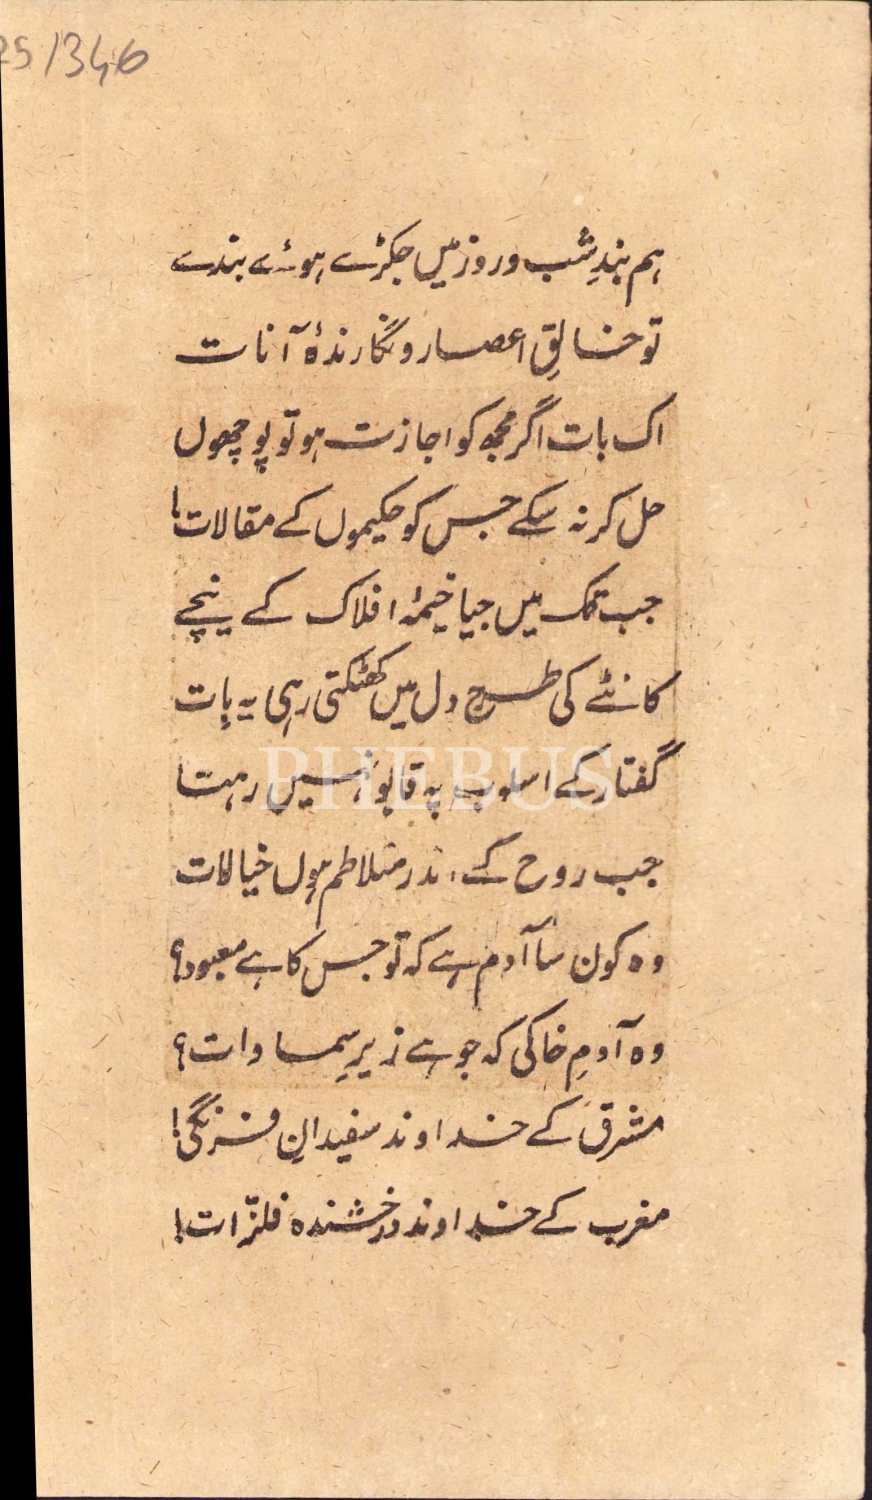 25/346
ہم بندِ شب و روز میں جکڑے ہوئے بندے
تو خالقِ اعصار و نگارندۂ آنات
اک بات اگر مجھ کو اجازت ہو تو پوچھوں
حل کر نہ سکے جس کو حکیموں کے مقالات!
جب تک میں جیا خیمۂ افلاک کے نیچے
کانٹے کی طرح دل میں کھٹکتی رہی یہ بات
گفتار کے اسلوب پہ قابو نہیں رہتا
جب روح کے اندر متلاطم ہوں خیالات
وہ کون سا آدم ہے کہ تو جس کا ہے معبود؟
وہ آدمِ خاکی کہ جو ہے زیرِ سماوات؟
مشرق کے خداوند سفیدانِ فرنگی!
مغرب کے خداوند درخشندہ فلزّات!
PHEBUS